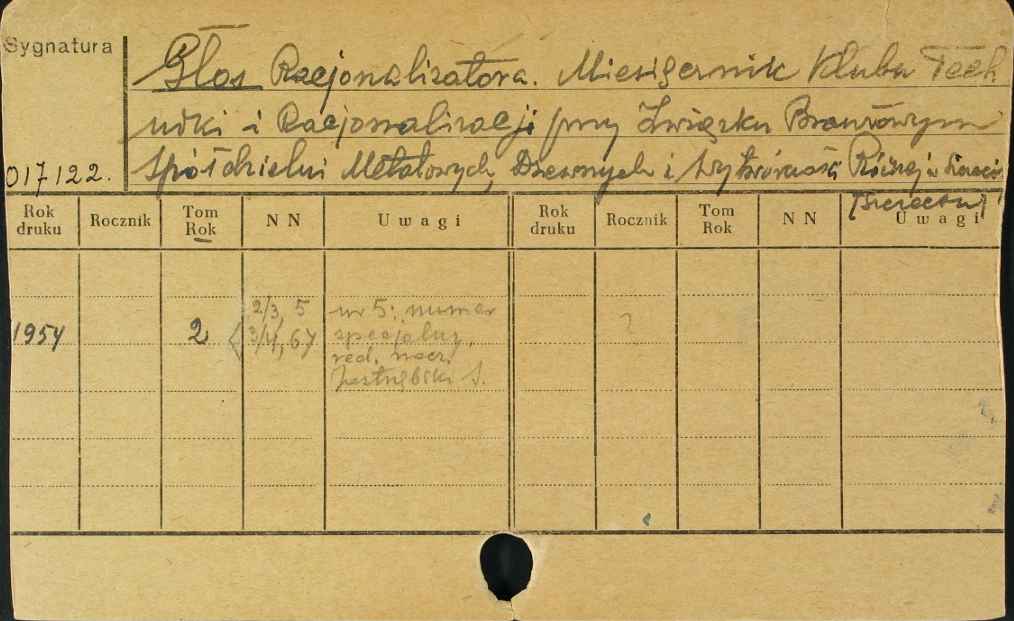 Sygnatura
Głos Racjonalizatora. Miesięcznik Klubu Tech
niki i Racjonalizacji przy Związku Branżowym
017122.
Spółdzielni Metalowych, Drzewnych i Wytwórczości Różnej w
[Szczecin]
Rok druku Rocznik Tom Rok N N Uwagi Rok druku Rocznik Tom Rok N N Uwagi
2/3, 5 nr 5: numer
1954 2 3/4, 67 specjalny,
red. nacz.
Jastrzębski S.